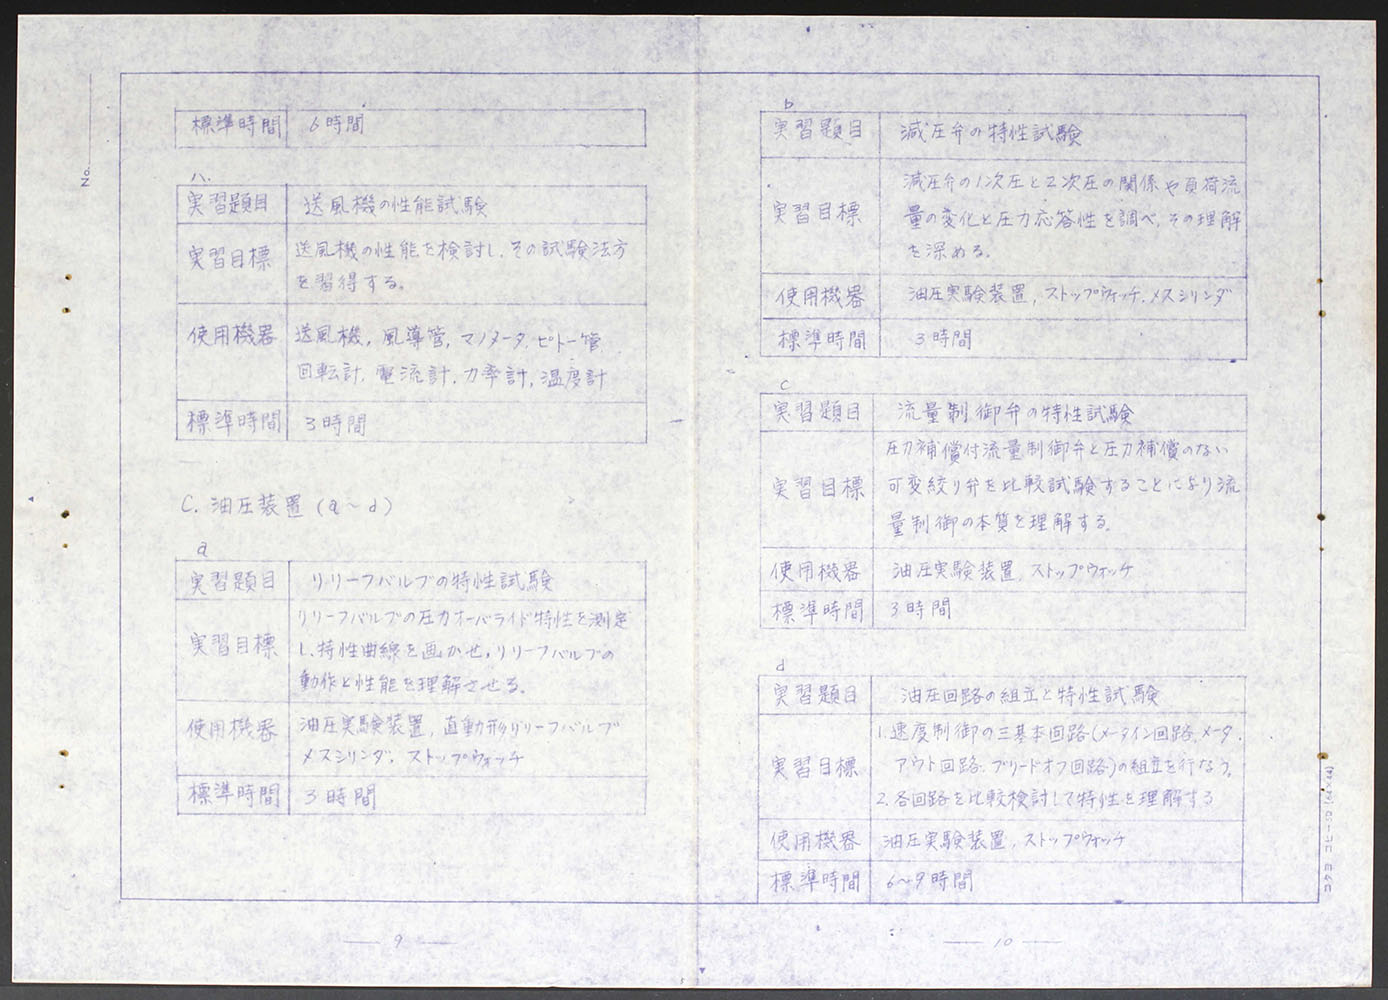 No.
標準時間 6時間
ハ.
実習題目 送風機の性能試験
実習目標 送風機の性能を検討し、その試験法方
を習得する。
使用機器 送風機, 風導管, マノメータ, ピトー管
回転計, 電流計, 力率計, 温度計
標準時間 3時間
C. 油圧装置 (a～d)
a
実習題目 リリーフバルブの特性試験
実習目標 リリーフバルブの圧力オーバライド特性を測定
し、特性曲線を画かせ,リリーフバルブの
動作と性能を理解させる。
使用機器 油圧実験装置, 直動形リリーフバルブ
メスシリンダ, ストップウォッチ
標準時間 3時間
9
b
実習題目 減圧弁の特性試験
実習目標 減圧弁の1次圧と2次圧の関係や負荷流
量の変化と圧力応答性を調べ,その理解
を深める。
使用機器 油圧実験装置, ストップウォッチ, メスシリンダ
標準時間 3時間
c
実習題目 流量制御弁の特性試験
実習目標 圧力補償付流量制御弁と圧力補償のない
可変絞り弁を比較試験することにより流
量制御の本質を理解する。
使用機器 油圧実験装置, ストップウォッチ
標準時間 3時間
d
実習題目 油圧回路の組立と特性試験
実習目標 1.速度制御の三基本回路(メータイン回路,メータ
アウト回路,ブリードオフ回路)の組立を行なう。
2.各回路を比較検討して特性を理解する
使用機器 油圧実験装置, ストップウォッチ
標準時間 6～9時間
10